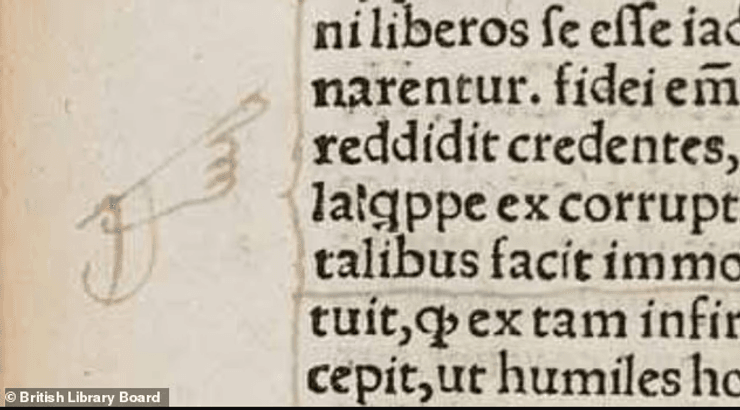 ni liberos ſe eſſe iac
narentur. fidei em̄
reddidit credentes,
laꝉ qppe ex corrupt
talibus facit immo
tuit,ꝙ ex tam infir
cepit,ut humiles ho
© British Library Board